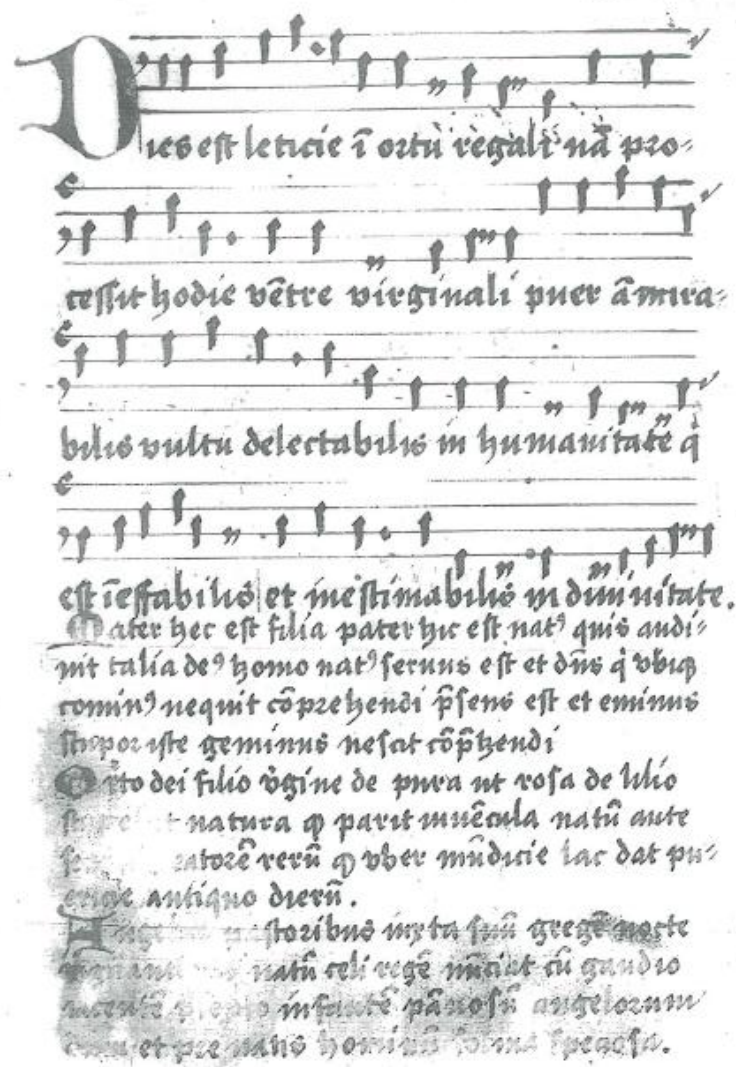 Dies est leticie ī ortu regali nā pro-
cessit hodie vētre virginali puer āmira-
bilis vultu delectabilis in humanitate q̇
est īeffabilis et inestimabilis in divinitate.
Mater hec est filia pater hic est natꝰ quis audi-
uit talia deꝰ homo natꝰ seruus est et dn̄s q̇ vbiqꝫ
cominꝰ nequit cōprehendi p̄sens est et eminus
iste geminus nescit cōp̄hendi
Orto dei filio v̇gine de pura ut rosa de lilio
natura ꝙ parit iuuēcula natū ante
rerū ꝙ vber mūdicie lac dat pu-
ericie antiquo dierū.
pastoribus iuxta suū gregē nocte
natū celi regē nūciat cū gaudio
iacentē infantē pānosū angelorum
et pre natis hominū forma speciosa.